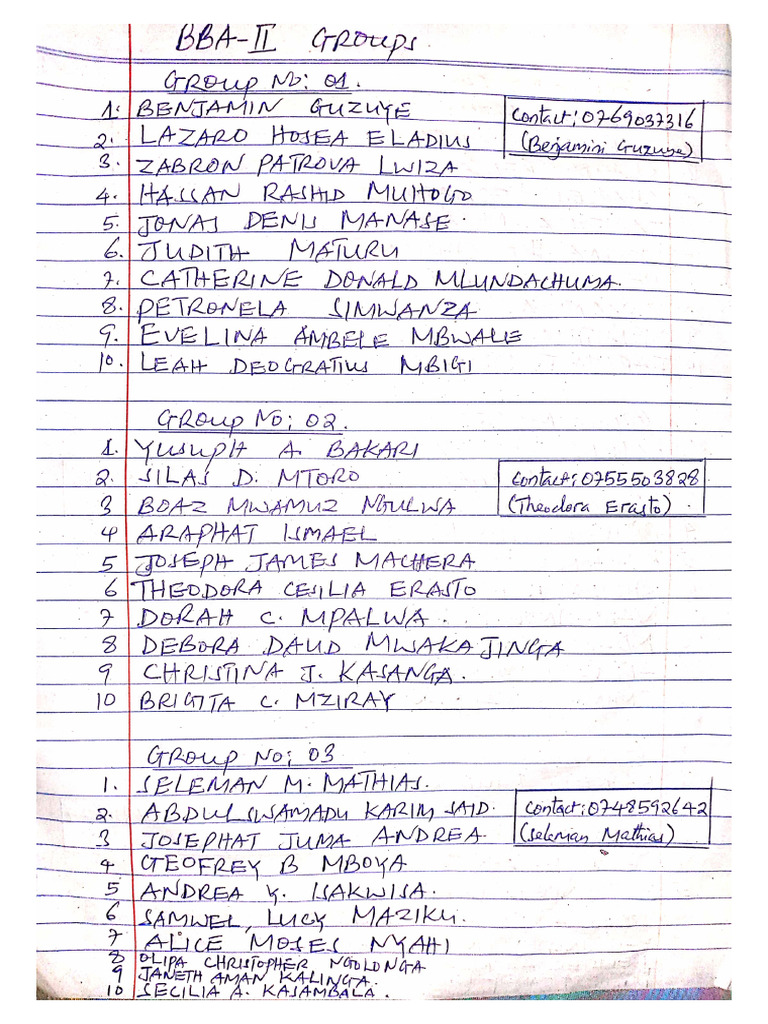 BBA-II GROUPS
GROUP No: 01.
1. BENJAMIN GUZUYE
Contact: 0769037316
(Benjamini Guzuye)
2. LAZARO HOSEA ELADIUS
3. ZABRON PATROVA LWIZA
4. HASSAN RASHID MUHOGO
5. JONAS DENIS MANASE.
6. JUDITH MATURU
7. CATHERINE DONALD MLUNDACHUMA.
8. PETRONELA SIMWANZA
9. EVELINA AMBELE MBWALE
10. LEAH DEOGRATIUS MBIGI
GROUP No; 02.
1. YUSUPH A. BAKARI
2. SILAS D. MTORO
Contact: 0755503828
(Theodora Erasto).
3 BOAZ MWAMUZ NGULWA
4 ARAPHAT ISMAEL
5 JOSEPH JAMES MACHERA
6 THEODORA CESILIA ERASTO
7 DORAH C. MPALWA.
8 DEBORA DAUD MWAKAJINGA
9 CHRISTINA J. KASANGA.
10 BRIGITA C. MZIRAY
GROUP No; 03
1. SELEMAN M. MATHIAS.
2. ABDULSWAMADU KARIM SAID.
Contact: 0748592642
(Seleman Mathias)
3 JOSEPHAT JUMA ANDREA.
4 GEOFREY B MBOYA
5 ANDREA Y. ISAKWISA.
6 SAMWEL, LUCY MAZIKU.
7 ALICE MOSES NYAHI
8 OLIPA CHRISTOPHER NGOLONGA
9 JANETH AMAN KALINGA.
10 SECILIA A. KASAMBALA.